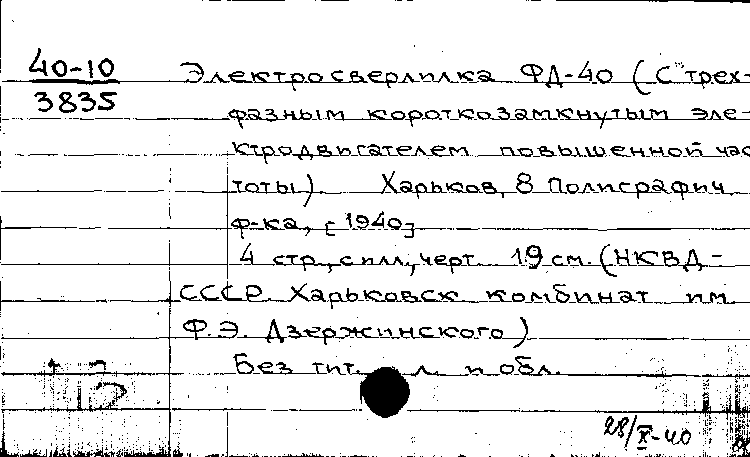 40-10
3835
Электросверлилка ФД-40 (С трех-
фазным короткозамкнутым эле-
ктродвигателем повышенной час
тоты). Харьков, 8 Полиграфич.
ф-ка, [1940]
4 стр., с илл., черт. 19 см. (НКВД-
СССР. Харьковск комбинат им
Ф.Э. Дзержинского)
Без тит. л. и обл.
28/X-40